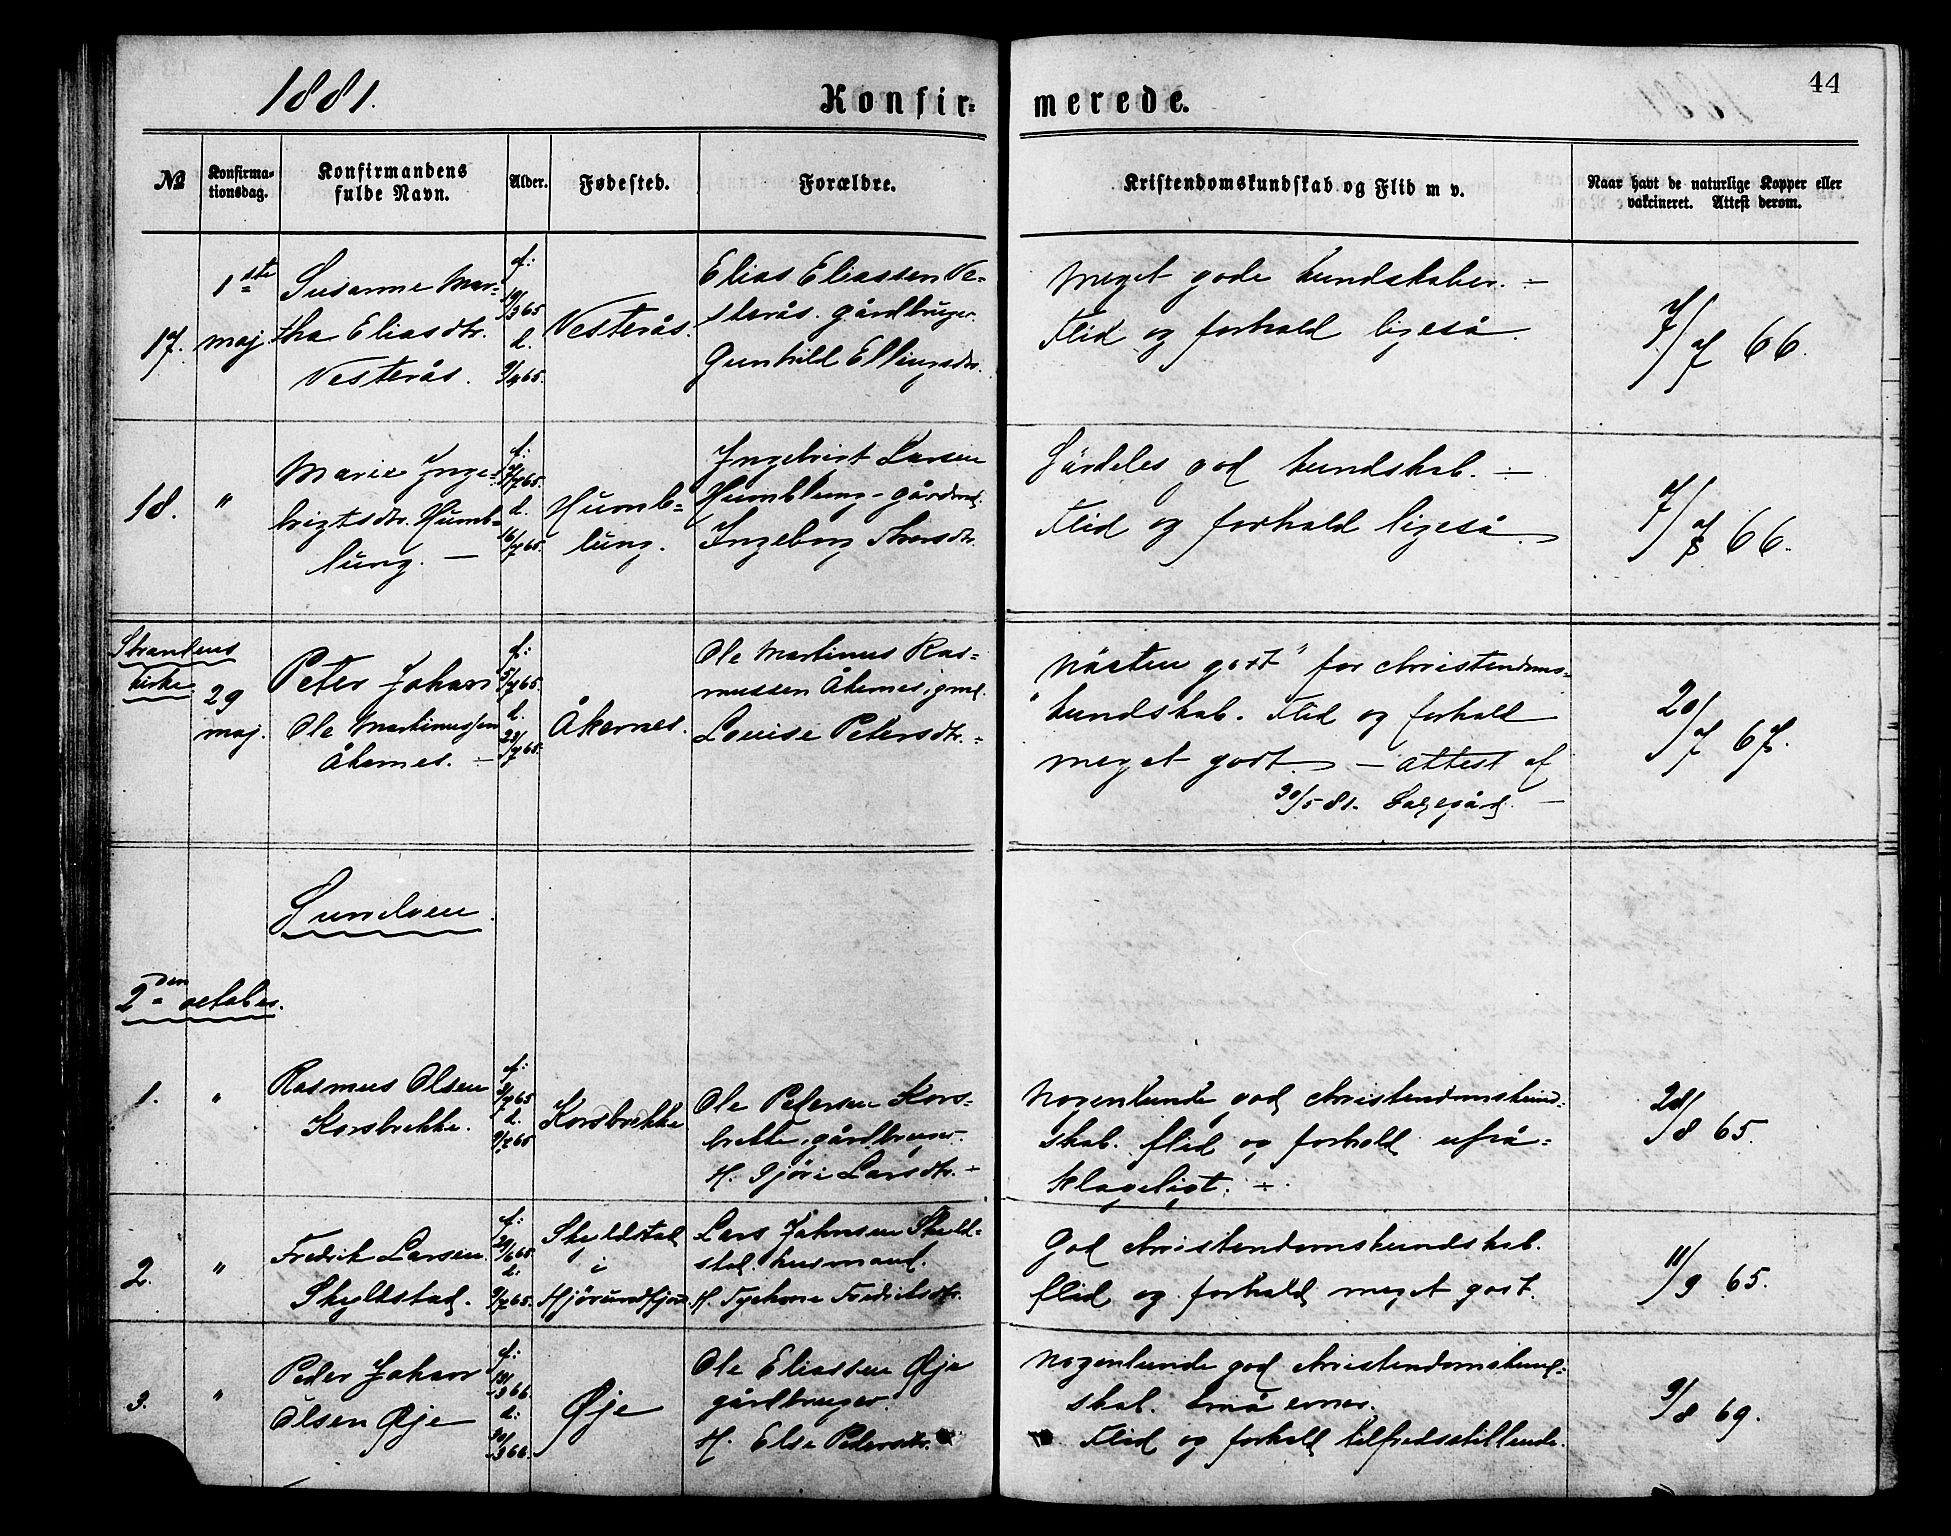 1881.
Konfir-
merede.
44
№
Konfirma-
tionsdag.
Konfirmandens
fulde Navn.
Alder.
Fødested.
Forældre.
Kristendomskundskab og Flid m v.
Naar havt de naturlige Kopper eller
vakcineret. Attest derom.
17.
1ste
maj
Susanne Mar-
tha Eliasdtr.
Vesterås.
f:
19/3 65
d.
9/4 65.
Vesterås.
Elias Eliassen Ve-
sterås. gårdbruger.
Gunhild Ellingsdtr.
Meget gode kundskaber. –
Flid og forhold ligeså.
7/7 66.
18.
"
Marie Inge-
brigtsdtr. Humb-
lung. –
f:
65.
d.
16/7 65.
Humb-
lung.
Ingebrigt Larsen
Humblung – gårdmd.
Ingeborg
Särdeles god kundskab. –
Flid og forhold ligeså.
7/8 66.
Strandens
kirke.
29
maj.
Peter Johan
Ole Martinussen
Åkernes. –
f:
65.
d.
23/7 65.
Åkernes.
Ole Martinus Ras-
mussen Åkernes, gmd.
Louise Petersdtr. –
"Nästen godt" for christendoms-
kundskab. Flid og forhold
meget godt. – attest af
30/5 81.
20/7 67.
Sunelven
2den october.
1.
"
Rasmus Olsen
Korsbrekke.
f:
65
d.
65
Korsbrekke
Ole Petersen Kors-
brekke, gårdbruger.
H. Gjöri Larsdtr. –
Nogenlunde god christendomskund-
skab. flid og forhold upå-
klageligt. –
28/8 65.
2.
"
Fredrik Larsen
Skyldstad.
f:
29/6 65.
d:
9/7 65.
Skyldstad
i
Hjörundfjord
Lars Johnsen Skyld-
stad. husmand.
H. Fredriksdtr.
God christendomskundskab.
flid og forhold meget godt.
11/9 65.
3.
"
Peder Johan
Olsen Øje
f:
66.
d:
30/3 66.
Øje
Ole Eliassen Øje
gårdbruger.
H. Else Pedersdtr.
Nogenlunde god christendomskund-
skab. Små evner.
Flid og forhold tilfredsstillende.
9/8 69.